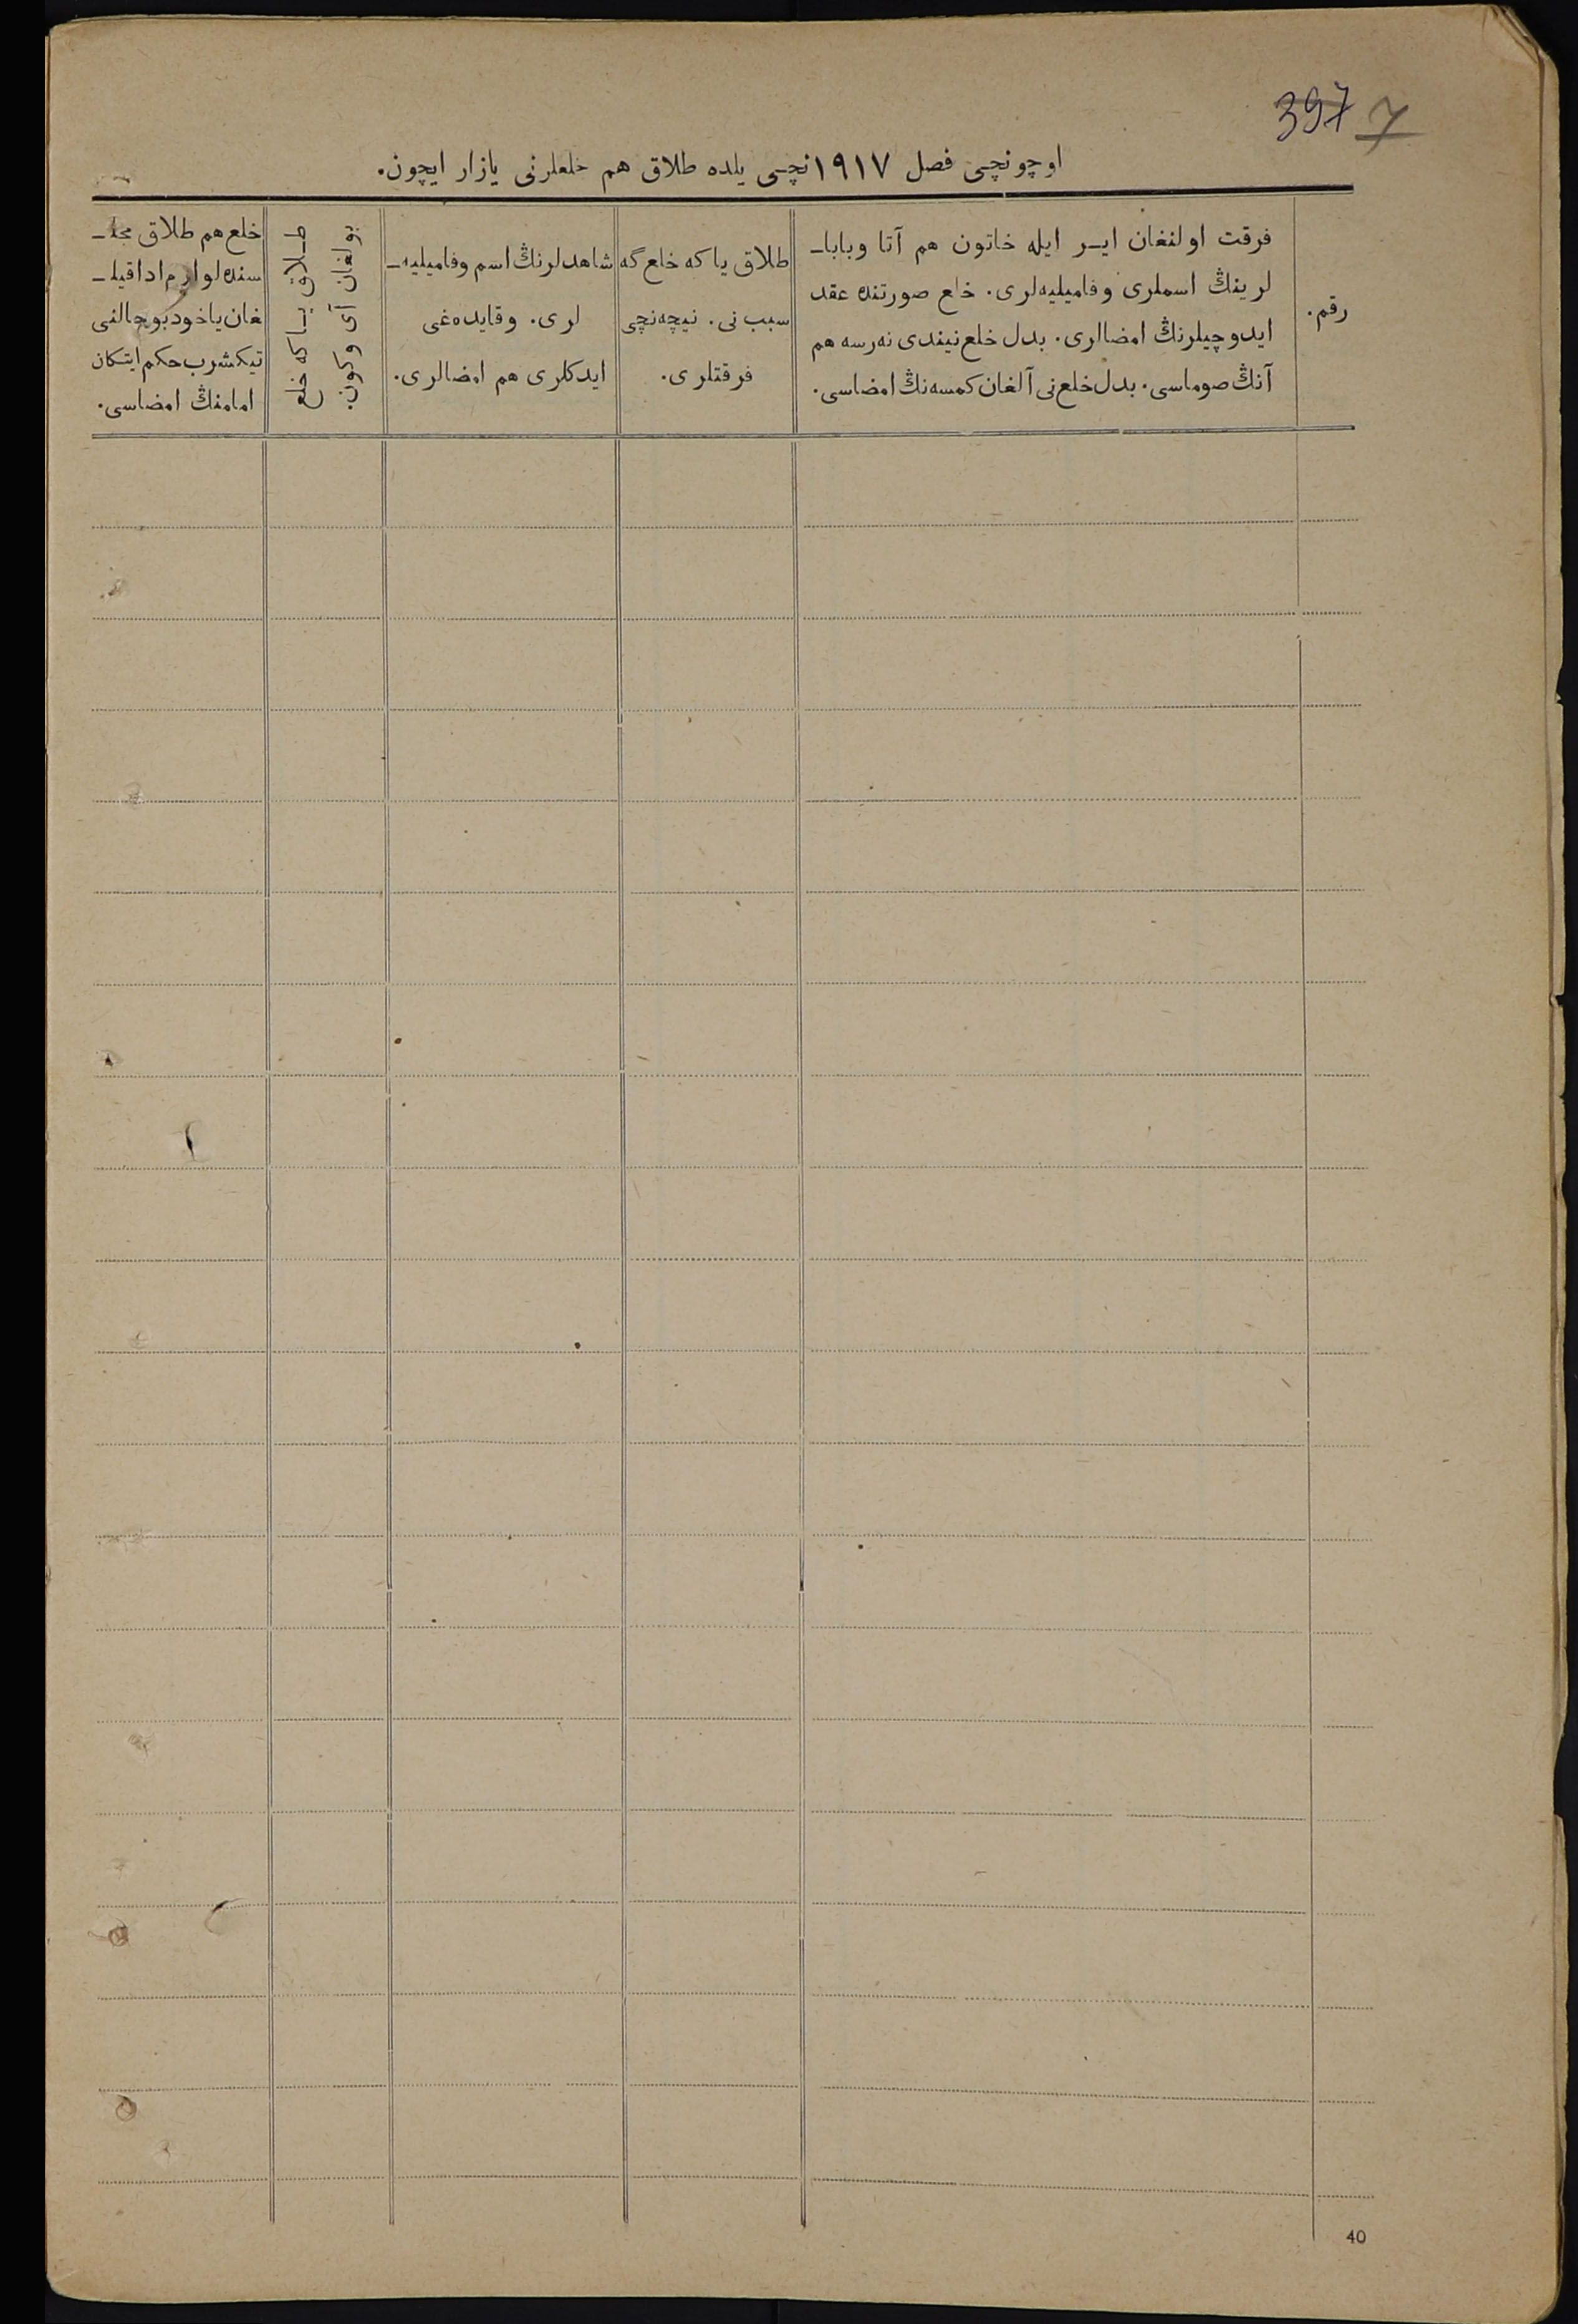 397 7
اوچونچی فصل ۱۹۱۷نچی یلده طلاق هم خلعلرنی یازار ایچون.
رقم.
فرقت اولنغان ایر ایله خاتون هم آتا وبابا‌ـ
لرینڭ اسملری وفامیلیه‌لری. خلع صورتنده عقد
ایدوچیلرنڭ امضالری. بدل خلع نیندی نه‌رسه هم
آنڭ صوماسی. بدل خلع نی آلغان کمسه‌نڭ امضاسی.
طلاق یا که خلع گه
سبب نی. نیچه‌نچی
فرقتلری.
شاهدلرنڭ اسم وفامیلیه‌ـ
لری. وقایده‌غی
ایدکلری هم امضالری.
طلاق یا که خلع
بولغان آی وکون.
خلع هم طلاق مجلـ
سنده لوازم ادا قیلـ
غان یا خود بو حالنی
تیکشرب حکم ایتکان
امامنڭ امضاسی.
40